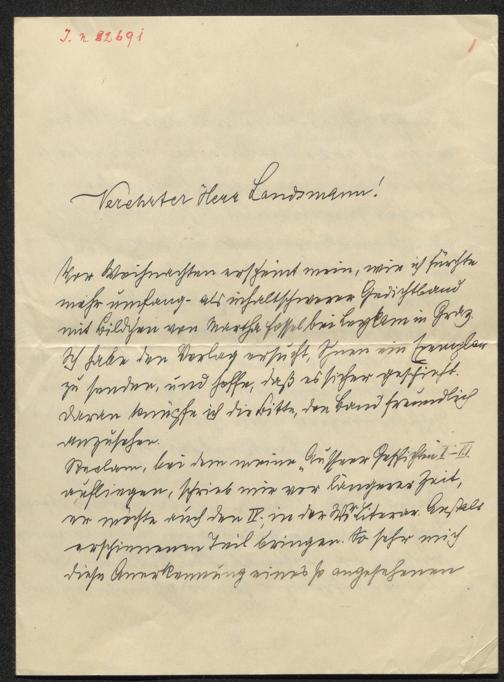 I. N. 82691
1
Verehrter Herr Landsmann!
Vor Weihnachten erscheint mein, wie ich fürchte
mehr umfang- als inhaltschwerer Gedichtband
mit Bildchen von Martha Fossel bei Leykam in Graz.
Ich habe den Verlag ersucht, Ihnen ein Exemplar
zu senden, und hoffe, daß es sicher geschieht.
Daran knüpfe ich die Bitte, den Band freundlich
anzusehen.
Reclam, bei dem meine „Ausseer Geschichten I–III
aufliegen, schrieb mir vor längerer Zeit,
er möchte auch den IV., in der Wr. Literar. Anstalt
erschienenen Teil bringen. So sehr mich
diese Anerkennung eines so angesehenen